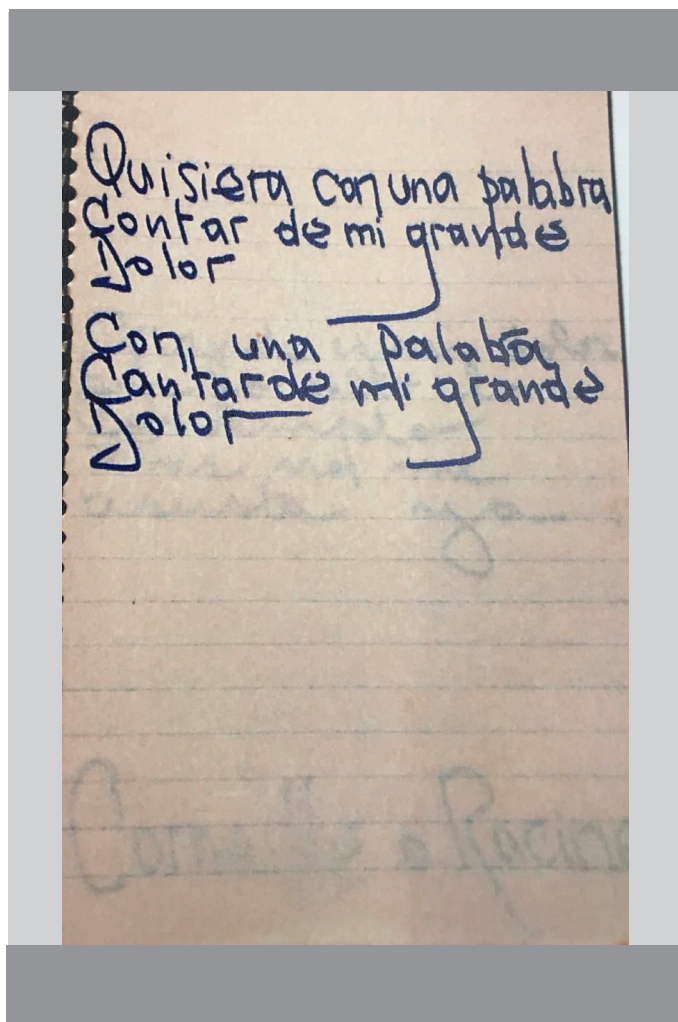 Quisiera con una palabra
Contar de mi grande
Dolor
Con, una palabra
Cantar de mi grande
Dolor